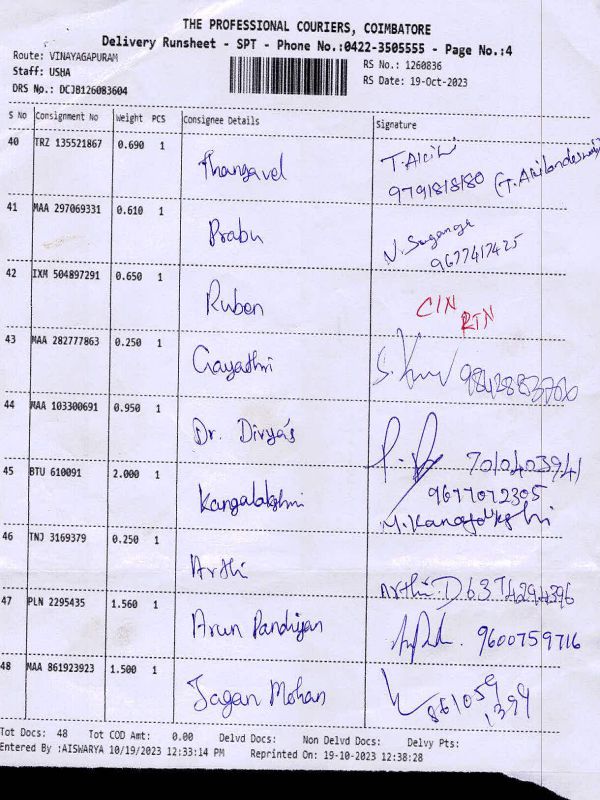 THE PROFESSIONAL COURIERS, COIMBATORE
Delivery Runsheet - SPT - Phone No.:0422-3505555 - Page No.:4
Route: VINAYAGAPURAM
RS No.: 1260836
Staff: USHA
RS Date: 19-Oct-2023
DRS No.: DCJB126083604
S No Consignment No Weight PCS Consignee Details Signature
40 TRZ 135521867 0.690 1 Thangavel T.
9791818180
41 MAA 297069331 0.610 1 Prabu N. Suganya
9677417425
42 IXM 504897291 0.650 1 Ruben CIN
RTN
43 MAA 282777863 0.250 1 Gayathri
44 MAA 103300691 0.950 1 Dr. Divya's 7010403941
45 BTU 610091 2.000 1 Kangalakshmi 9677072305
46 TNJ 3169379 0.250 1 Arthi Arthi.D 6374294396
47 PLN 2295435 1.560 1 Arun Pandiyan 9600759716
48 MAA 861923923 1.500 1 Jagan Mohan 861059
1399
Tot Docs: 48 Tot COD Amt: 0.00 Delvd Docs: Non Delvd Docs: Delvy Pts:
Entered By :AISWARYA 10/19/2023 12:33:14 PM Reprinted On: 19-10-2023 12:38:28